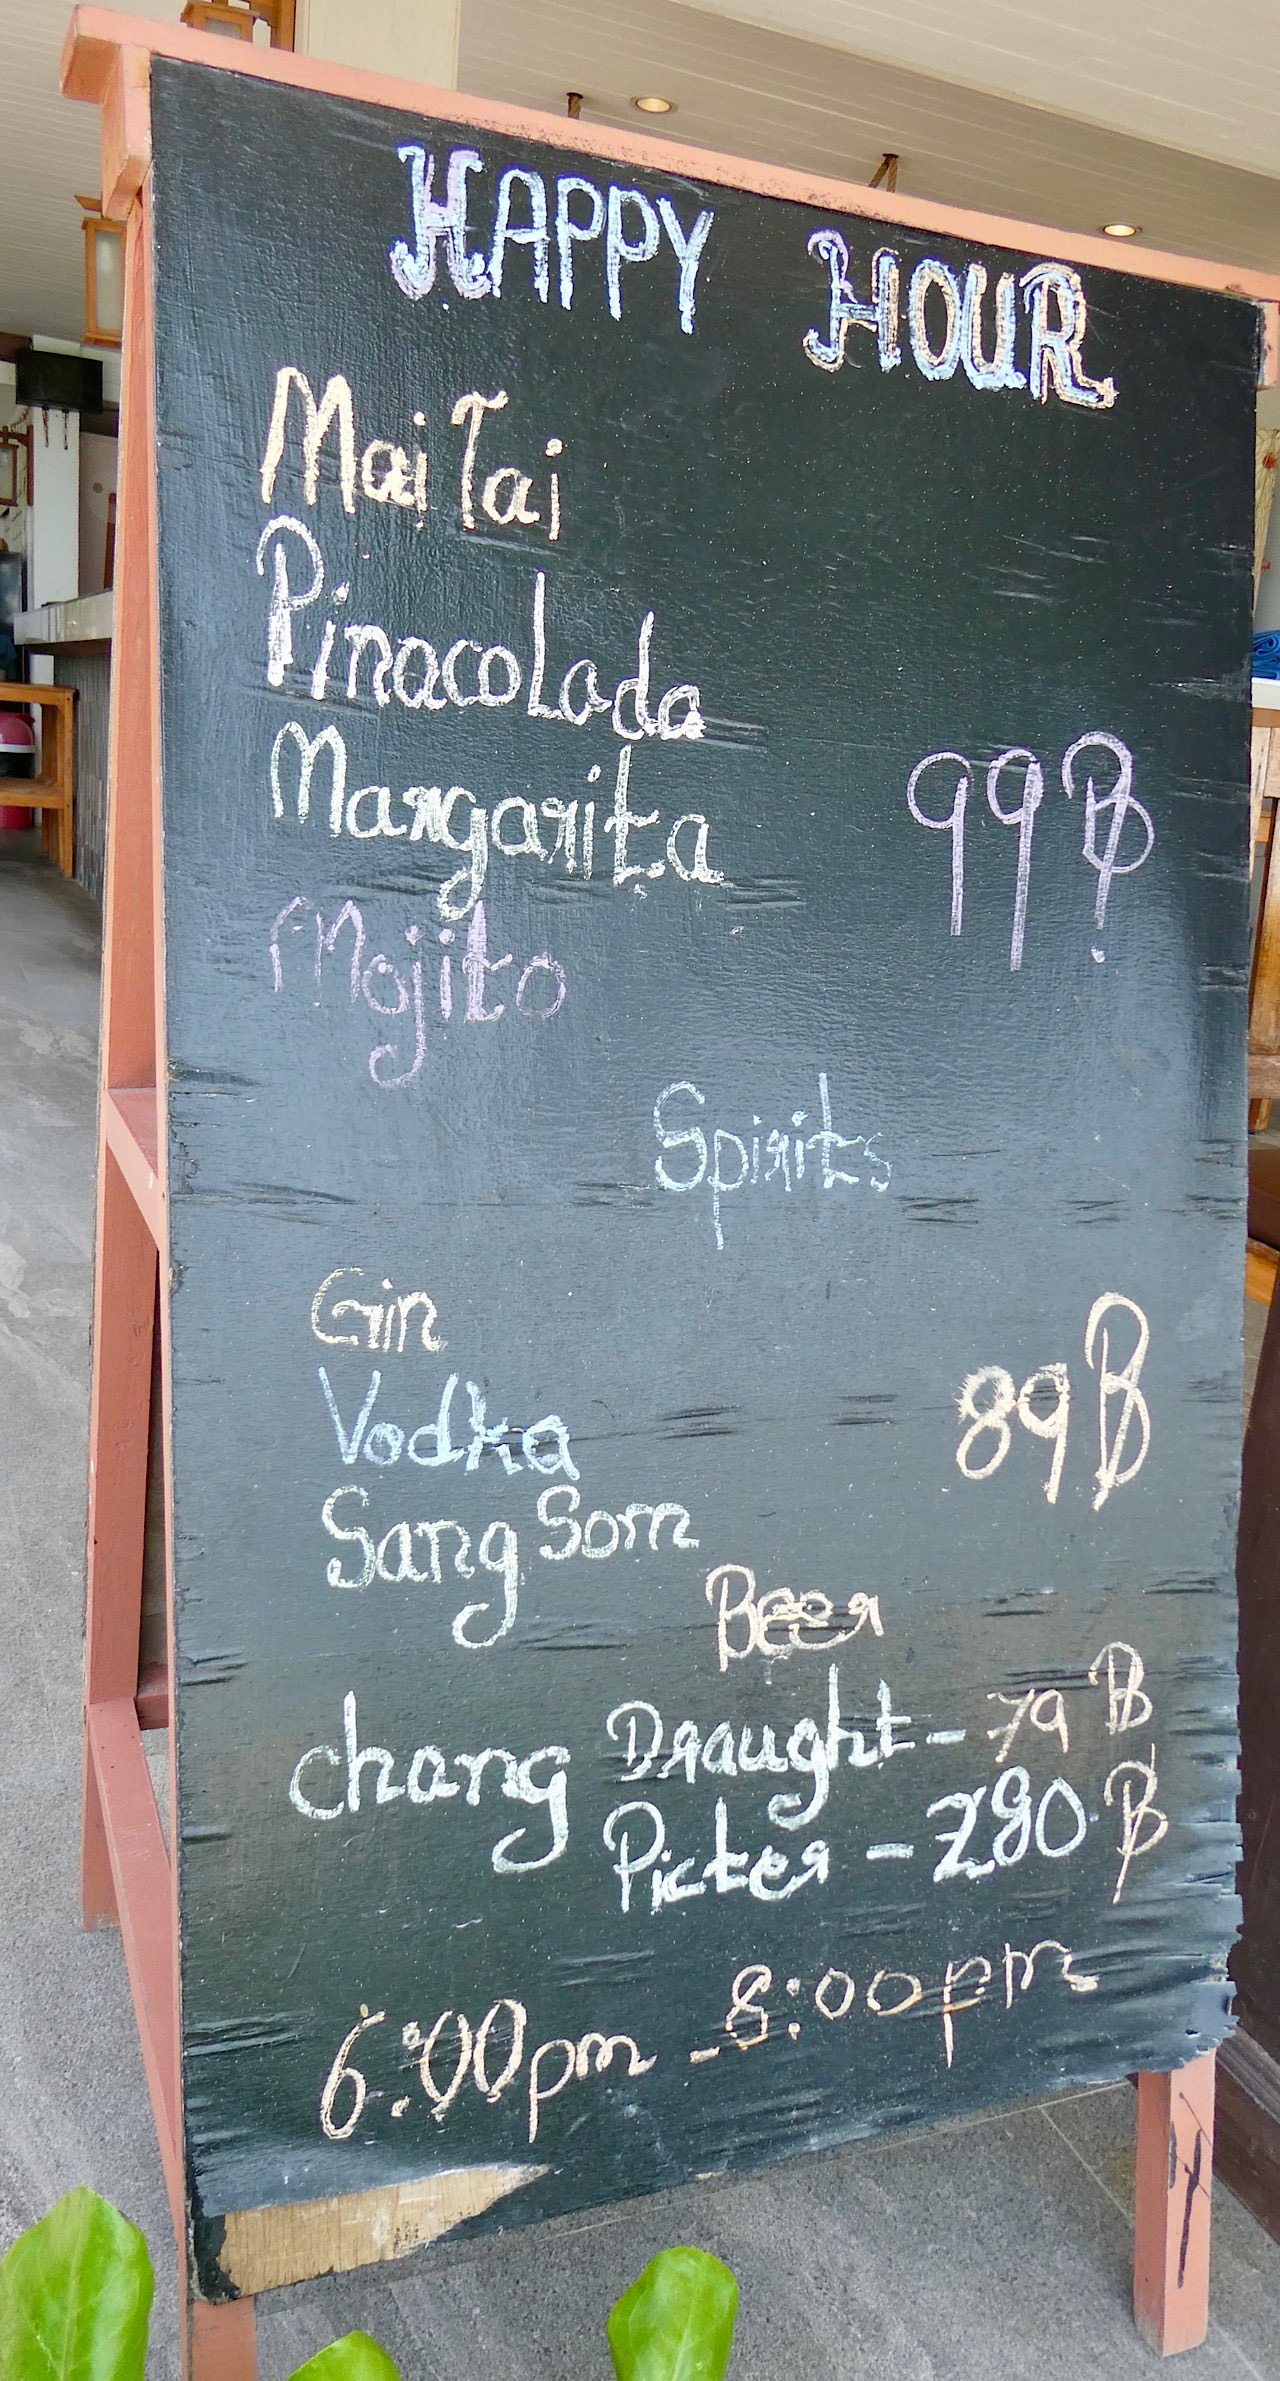 HAPPY HOUR
Mai Tai
PinacoLada
Margarita
99 ฿
Mojito
Spirits
Gin
Vodka
89 ฿
Sang Som
Beer
chang Draught - 79 ฿
Picter - 280 ฿
6:00pm - 8:00pm